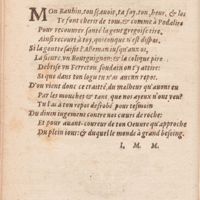 MOn Bauhin, ton sçauoir, ta foy, ton heur, & los
Te font chery de tous, & comme à Podalire
Pour recouurer santé la gent Gregeois tire,
Ainsi recourt à toy, quiconque n'est dispos.
Si la goutte saisit l'Aleman iusqu'aux os,
La fieure vn Bourguignon: & la colique pire
Debrise vn Ferreton, soudain on t'y attire:
Si que dans ton logis tu n'as aucun repos.
D'ou vient donc ce traité, du malheur qu'auons eu
Par les mouches & tans, que nos ayeux n'ont veu?
Tu l'as en tes repos dressé pour tesmoin
Du diuin iugement contre nos cœurs de roche:
Et pour auant-coureur de ton Oeuure qu'approche
Du plein iour: & duquel le monde à grand besoing.
I. M. M.